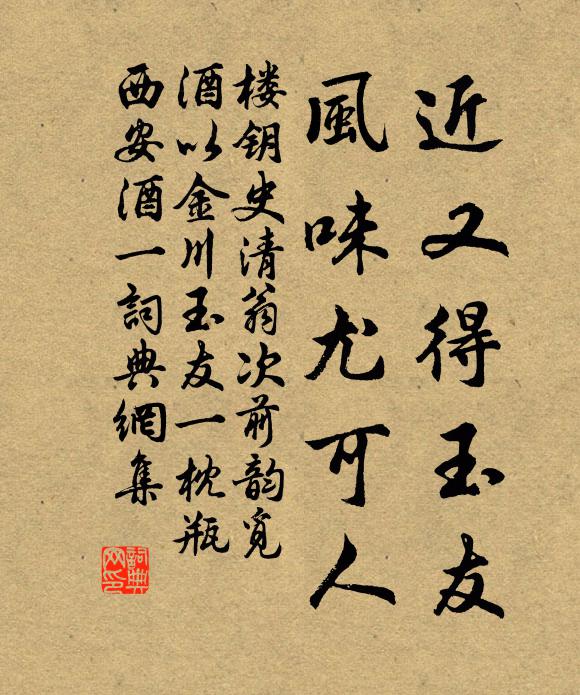 近又得玉友
風味尤可人
楼钥史清翁次前韵覓
酒以金川玉友一枕瓶
西安酒一詞典網集
詞典网印